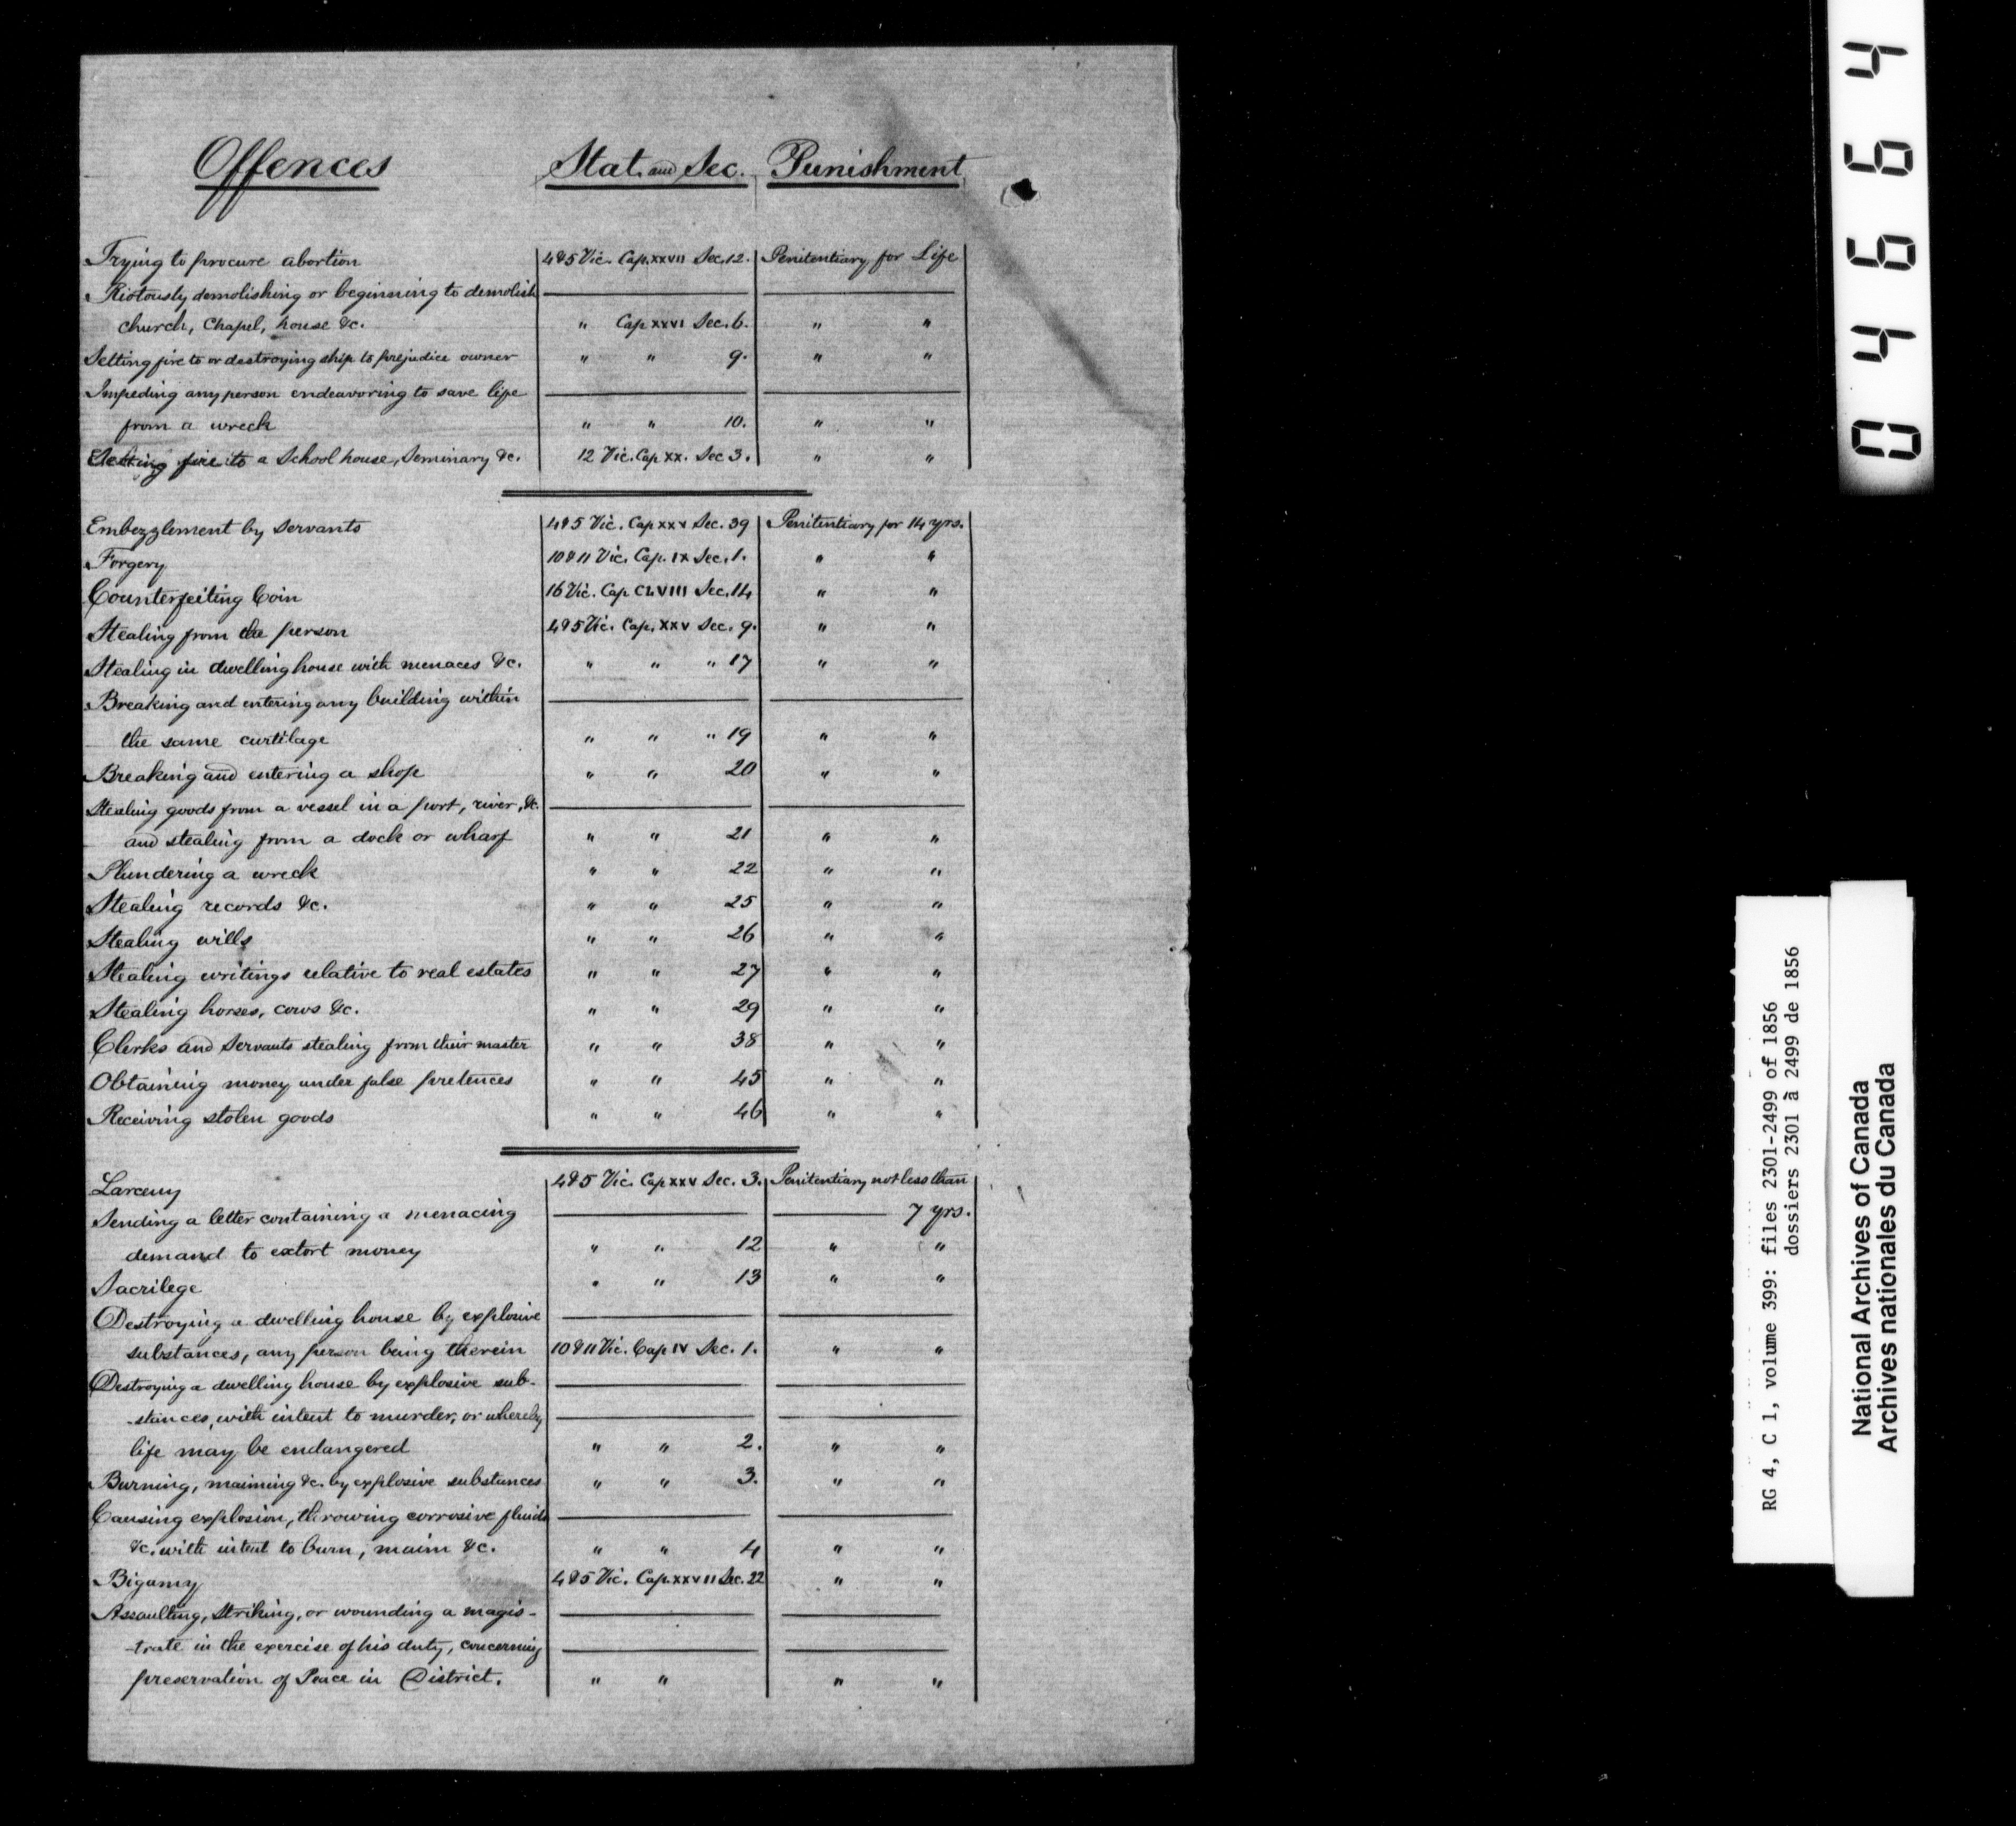 Offences Stat. and Sec. Punishment
Trying to procure abortion 4&5 Vic. Cap. XXVII Sec. 12. Penitentiary for Life
Riotously demolishing or beginning to demolish
church, Chapel, house &c. " Cap XXVI Sec. 6. " "
Setting fire to or destroying ship to prejudice owner " " 9. " "
Impeding any person endeavoring to save life
from a wreck " " 10. " "
Setting fire to a School house, Seminary &c. 12 Vic. Cap XX. Sec 3. " "
Embezzlement by Servants 4&5 Vic. Cap XXV Sec. 39 Penitentiary for 14 yrs.
Forgery 10&11 Vic. Cap. IX Sec. 1. " "
Counterfeiting Coin 16 Vic. Cap CLVIII Sec. 14 " "
Stealing from the person 4&5 Vic. Cap. XXV Sec. 9. " "
Stealing in dwelling house with menaces &c. " " " 17 " "
Breaking and entering any building within
the same curtilage " " " 19 " "
Breaking and entering a shop " " 20 " "
Stealing goods from a vessel in a port, river, &c.
and stealing from a dock or wharf " " 21 " "
Plundering a wreck " " 22 " "
Stealing records &c. " " 25 " "
Stealing wills " " 26 " "
Stealing writings relative to real estates " " 27 " "
Stealing horses, cows &c. " " 29 " "
Clerks and Servants stealing from their master " " 38 " "
Obtaining money under false pretences " " 45 " "
Receiving stolen goods " " 46 " "
Larceny 4&5 Vic. Cap XXV Sec. 3. Penitentiary not less than
Sending a letter containing a menacing 7 yrs.
demand to extort money " " 12 " "
Sacrilege " " 13 " "
Destroying a dwelling house by explosive
substances, any person being therein 10&11 Vic. Cap IV Sec. 1. " "
Destroying a dwelling house by explosive sub-
-stances, with intent to murder, or whereby
life may be endangered " " 2. " "
Burning, maiming &c. by explosive substances " " 3. " "
Causing explosion, throwing corrosive fluids
&c. with intent to burn, maim &c. " " 4 " "
Bigamy 4&5 Vic. Cap. XXVII Sec. 22 " "
Assaulting, Striking, or wounding a magis-
-trate in the exercise of his duty, concerning
preservation of Peace in District. " " " "
04664
RG 4, C 1, volume 399: files 2301-2499 of 1856
dossiers 2301 à 2499 de 1856
National Archives of Canada
Archives nationales du Canada